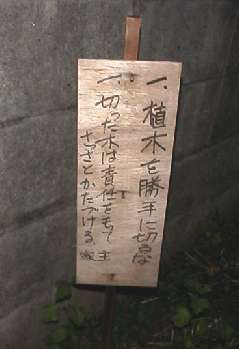 一、植木を勝手に切るな
一、切った木は責任をもって
さっさとかたづける 家主